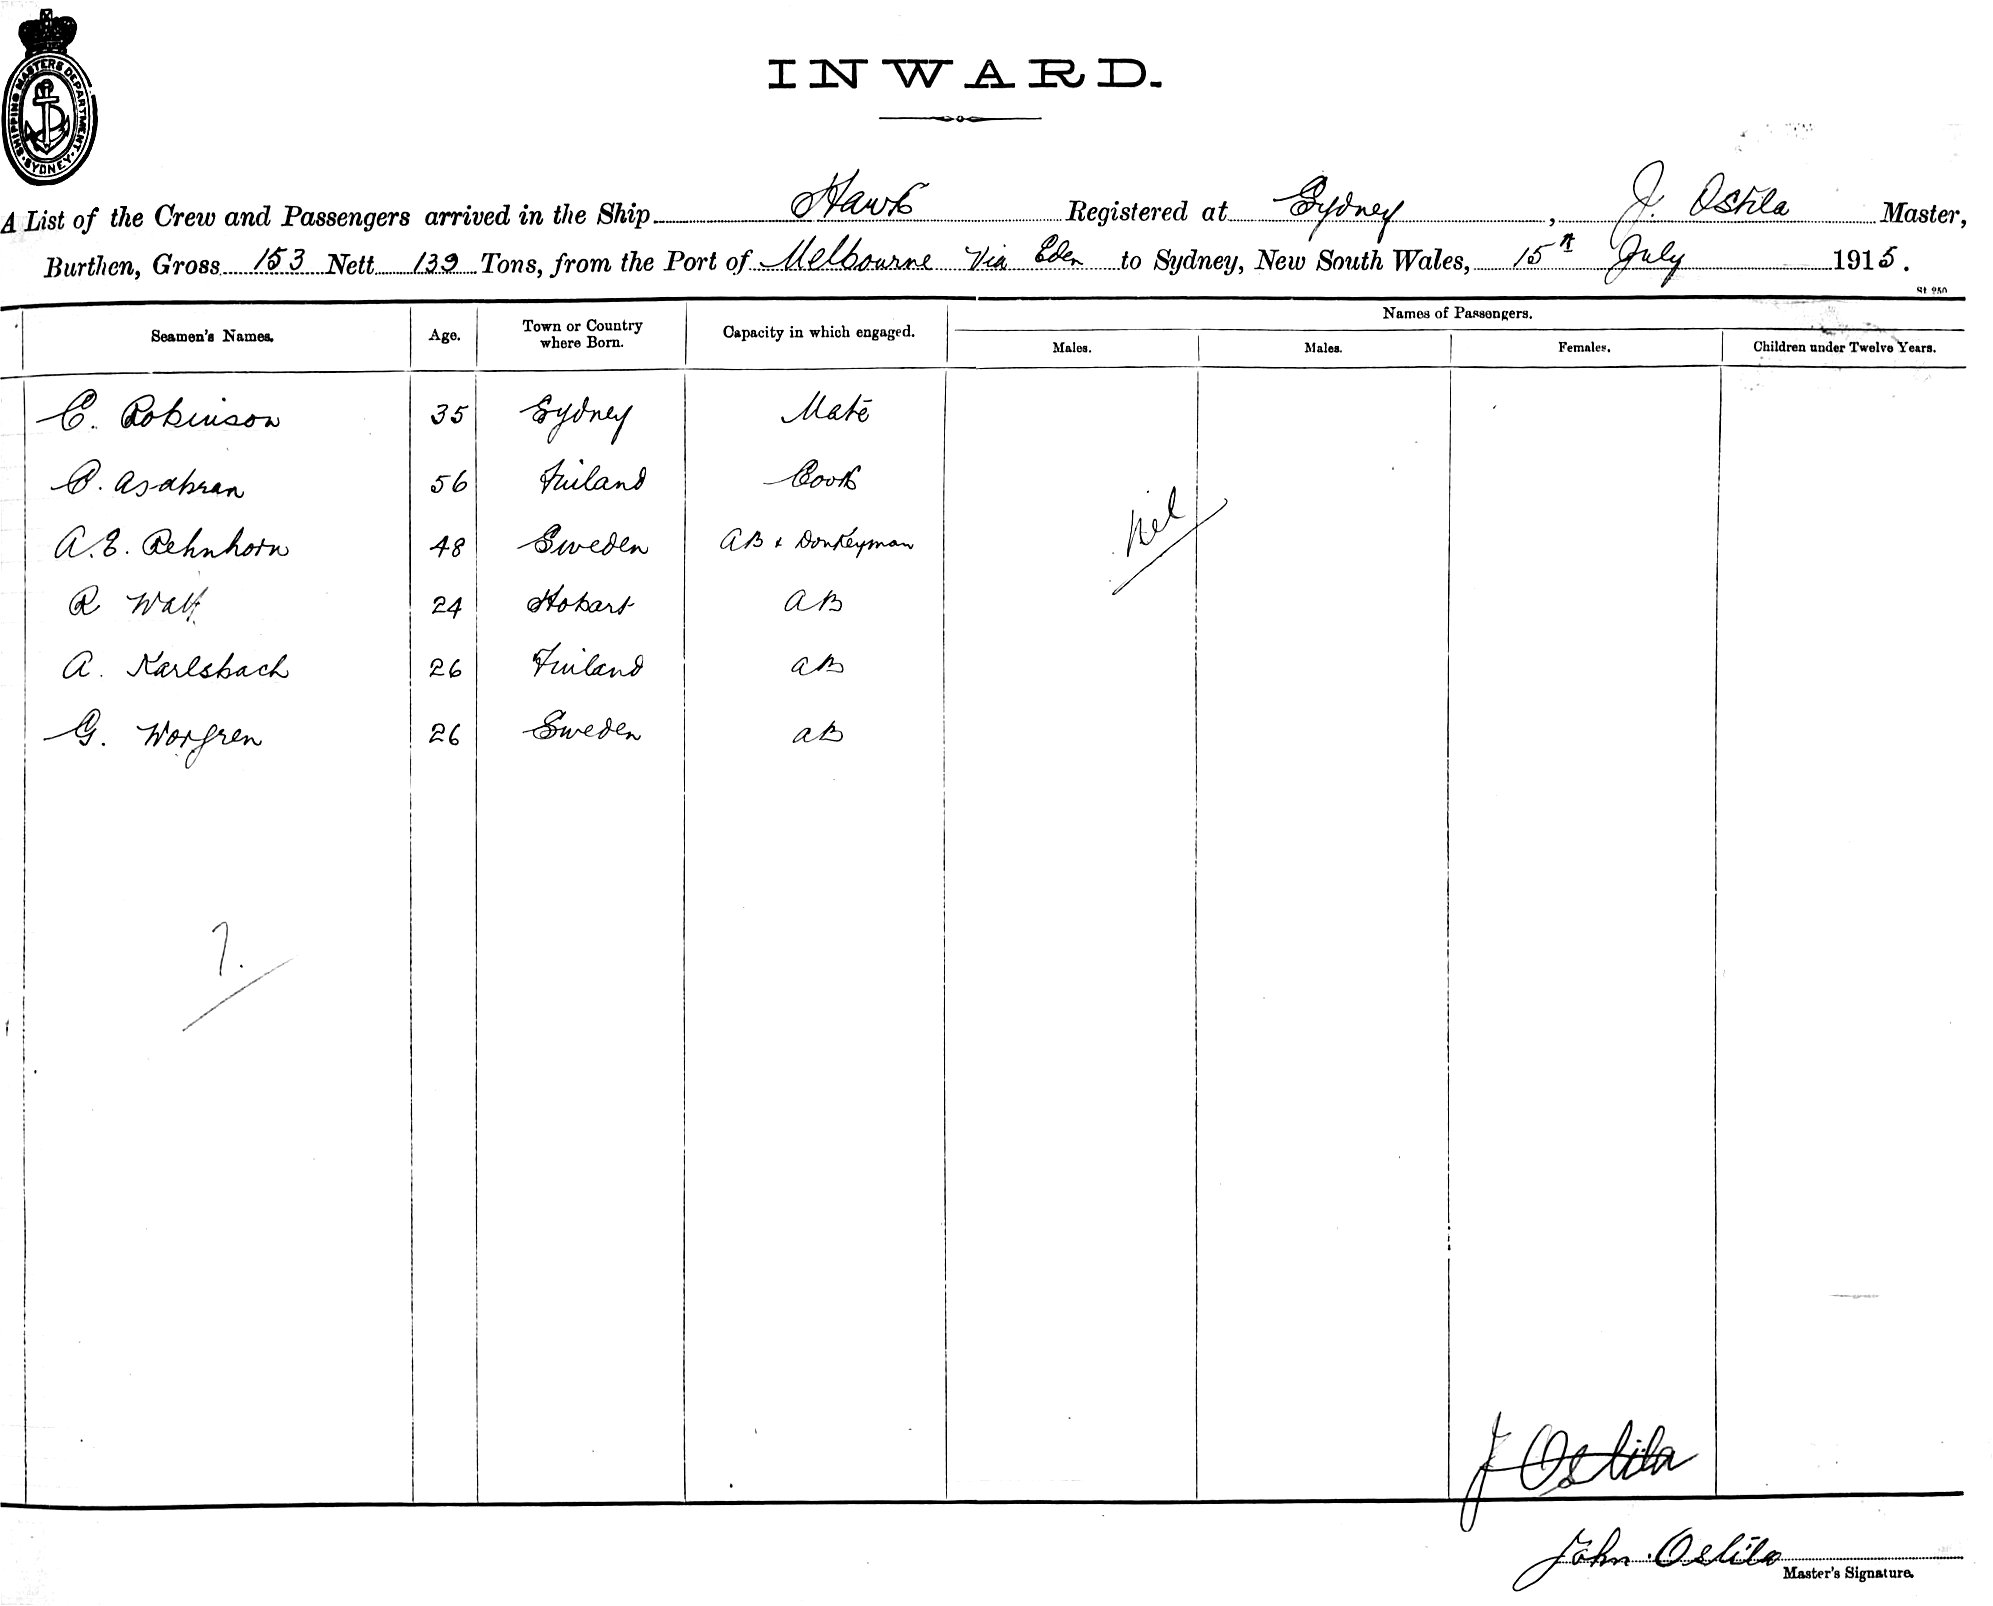 SHIPPING MASTERS DEPARTMENT · SYDNEY ·
INWARD.
A List of the Crew and Passengers arrived in the Ship Hawk Registered at Sydney, J. Ostila Master,
Burthen, Gross 153 Nett 139 Tons, from the Port of Melbourne Via Eden to Sydney, New South Wales, 15th July 1915.
Names of Passengers.
Seamen's Names. Age. Town or Country where Born. Capacity in which engaged. Males. Males. Females. Children under Twelve Years.
C. Robinson 35 Sydney Mate
56 Finland Cook
A.E. Rehnhorn 48 Sweden AB & Donkeyman
Nil
R 24 Hobart AB
A. Karlsbach 26 Finland AB
G. Worgren 26 Sweden AB
7.
J Ostila
John Ostila
Master's Signature.